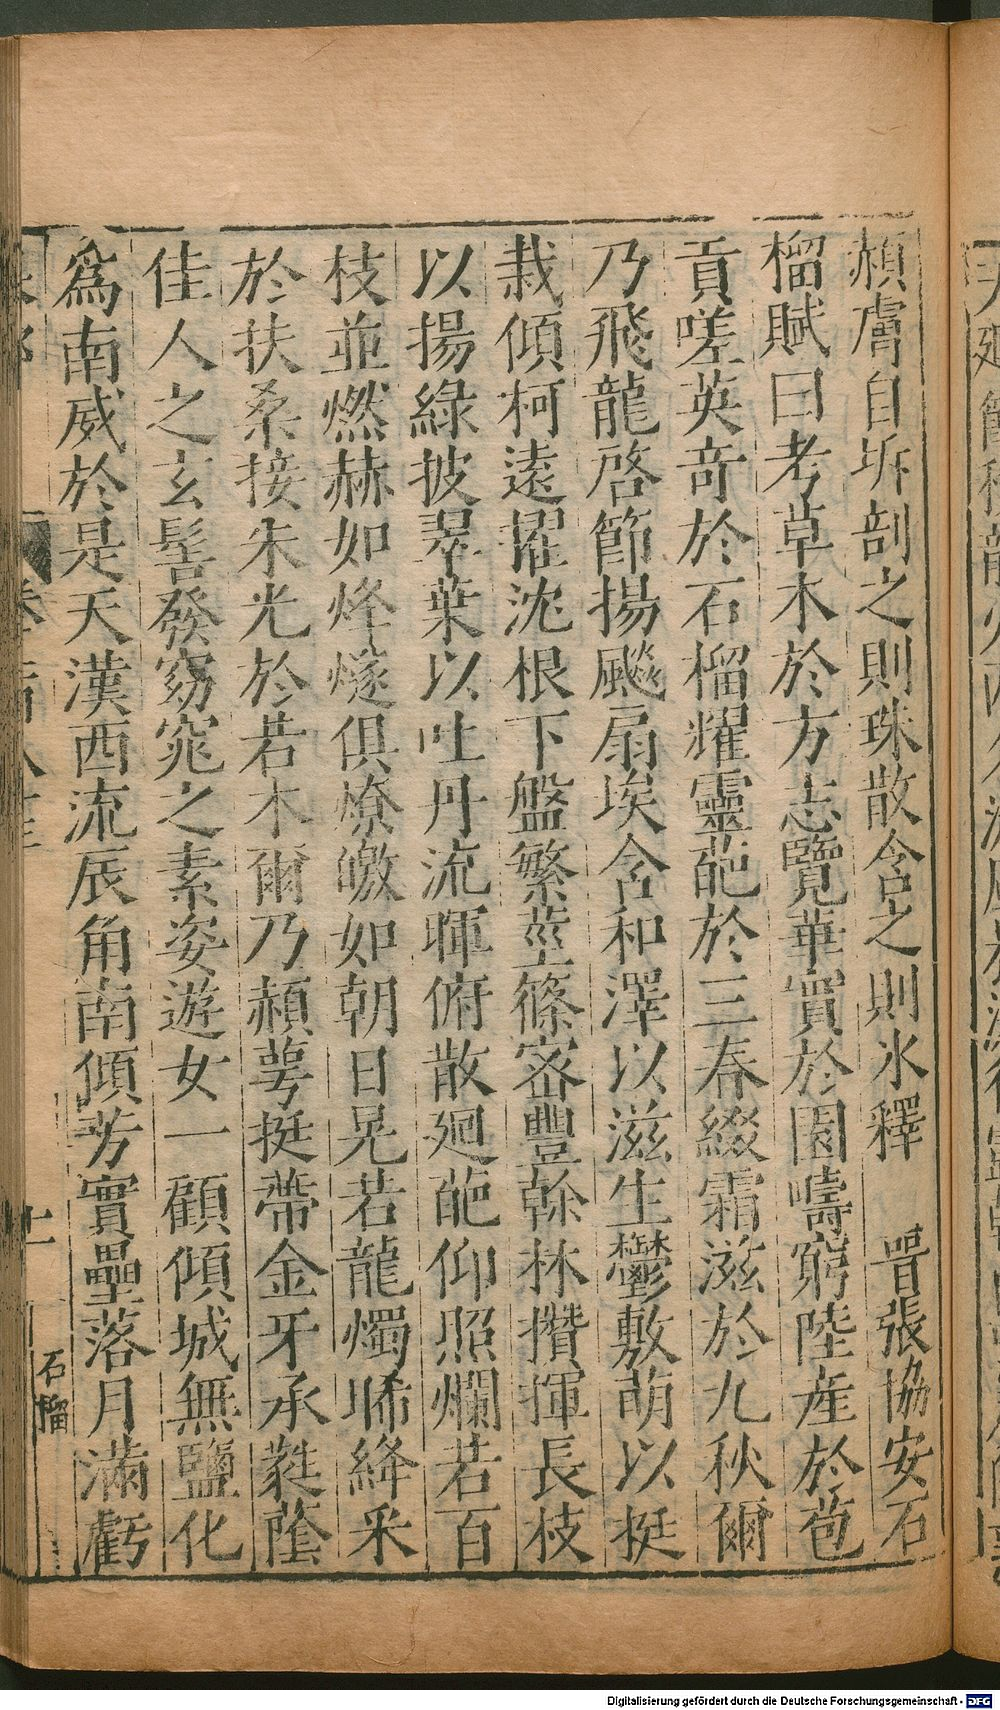 頳膚自坼剖之則珠散含之則氷釋　晉張協安石
榴賦曰考草木於方志覽華實於園疇窮陸産於苞
貢嗟英奇於石榴耀靈葩於三春綴霜滋於九秋爾
乃飛龍啓節揚飈扇埃含和澤以滋生鬱敷萌以挺
栽傾柯遠擢沈根下盤繁莖篠密豐幹林攢揮長枝
以揚綠披翠葉以吐丹流暉俯散廻葩仰照爛若百
枝並燃赫如烽燧俱燎皦如朝日晃若龍燭晞絳采
於扶桑接朱光於若木爾乃頳萼挺蔕金牙承蕤蔭
佳人之玄髻發窈窕之素姿遊女一顧傾城無鹽化
爲南威於是天漢西流辰角南傾芳實壘落月滿虧
石榴
Digitalisierung gefördert durch die Deutsche Forschungsgemeinschaft - DFG